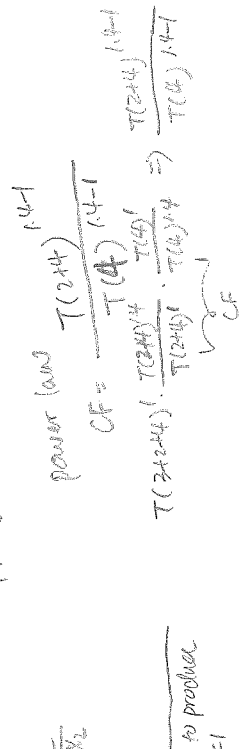 x₂
to produce
=1
power law
CF = T(2+4)^1.4-1 / T(4)^1.4-1
T(3+2+4)^1 · T(2+4)^1.4 / T(2+4)^1 · T(4)^1 / T(4)^1.4 => T(2+4)^1.4-1 / T(4)^1.4-1
CF